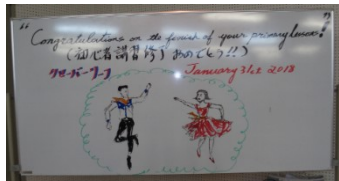 "Congratulations on the finish of your primary lesson!"
(初心者講習修了 おめでとう!!)
クローバーリーフ January 31st 2018